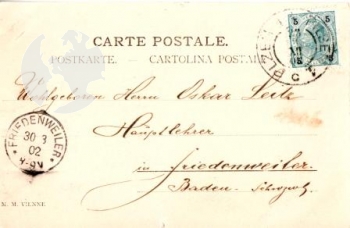 CARTE POSTALE.
POSTKARTE. – CARTOLINA POSTALE
5 5
PLZEŇ
Wohlgeboren Herrn Oskar
Hauptlehrer
FRIEDENWEILER
30 3
02
in Friedenweiler.
Baden -
N. M. VIENNE